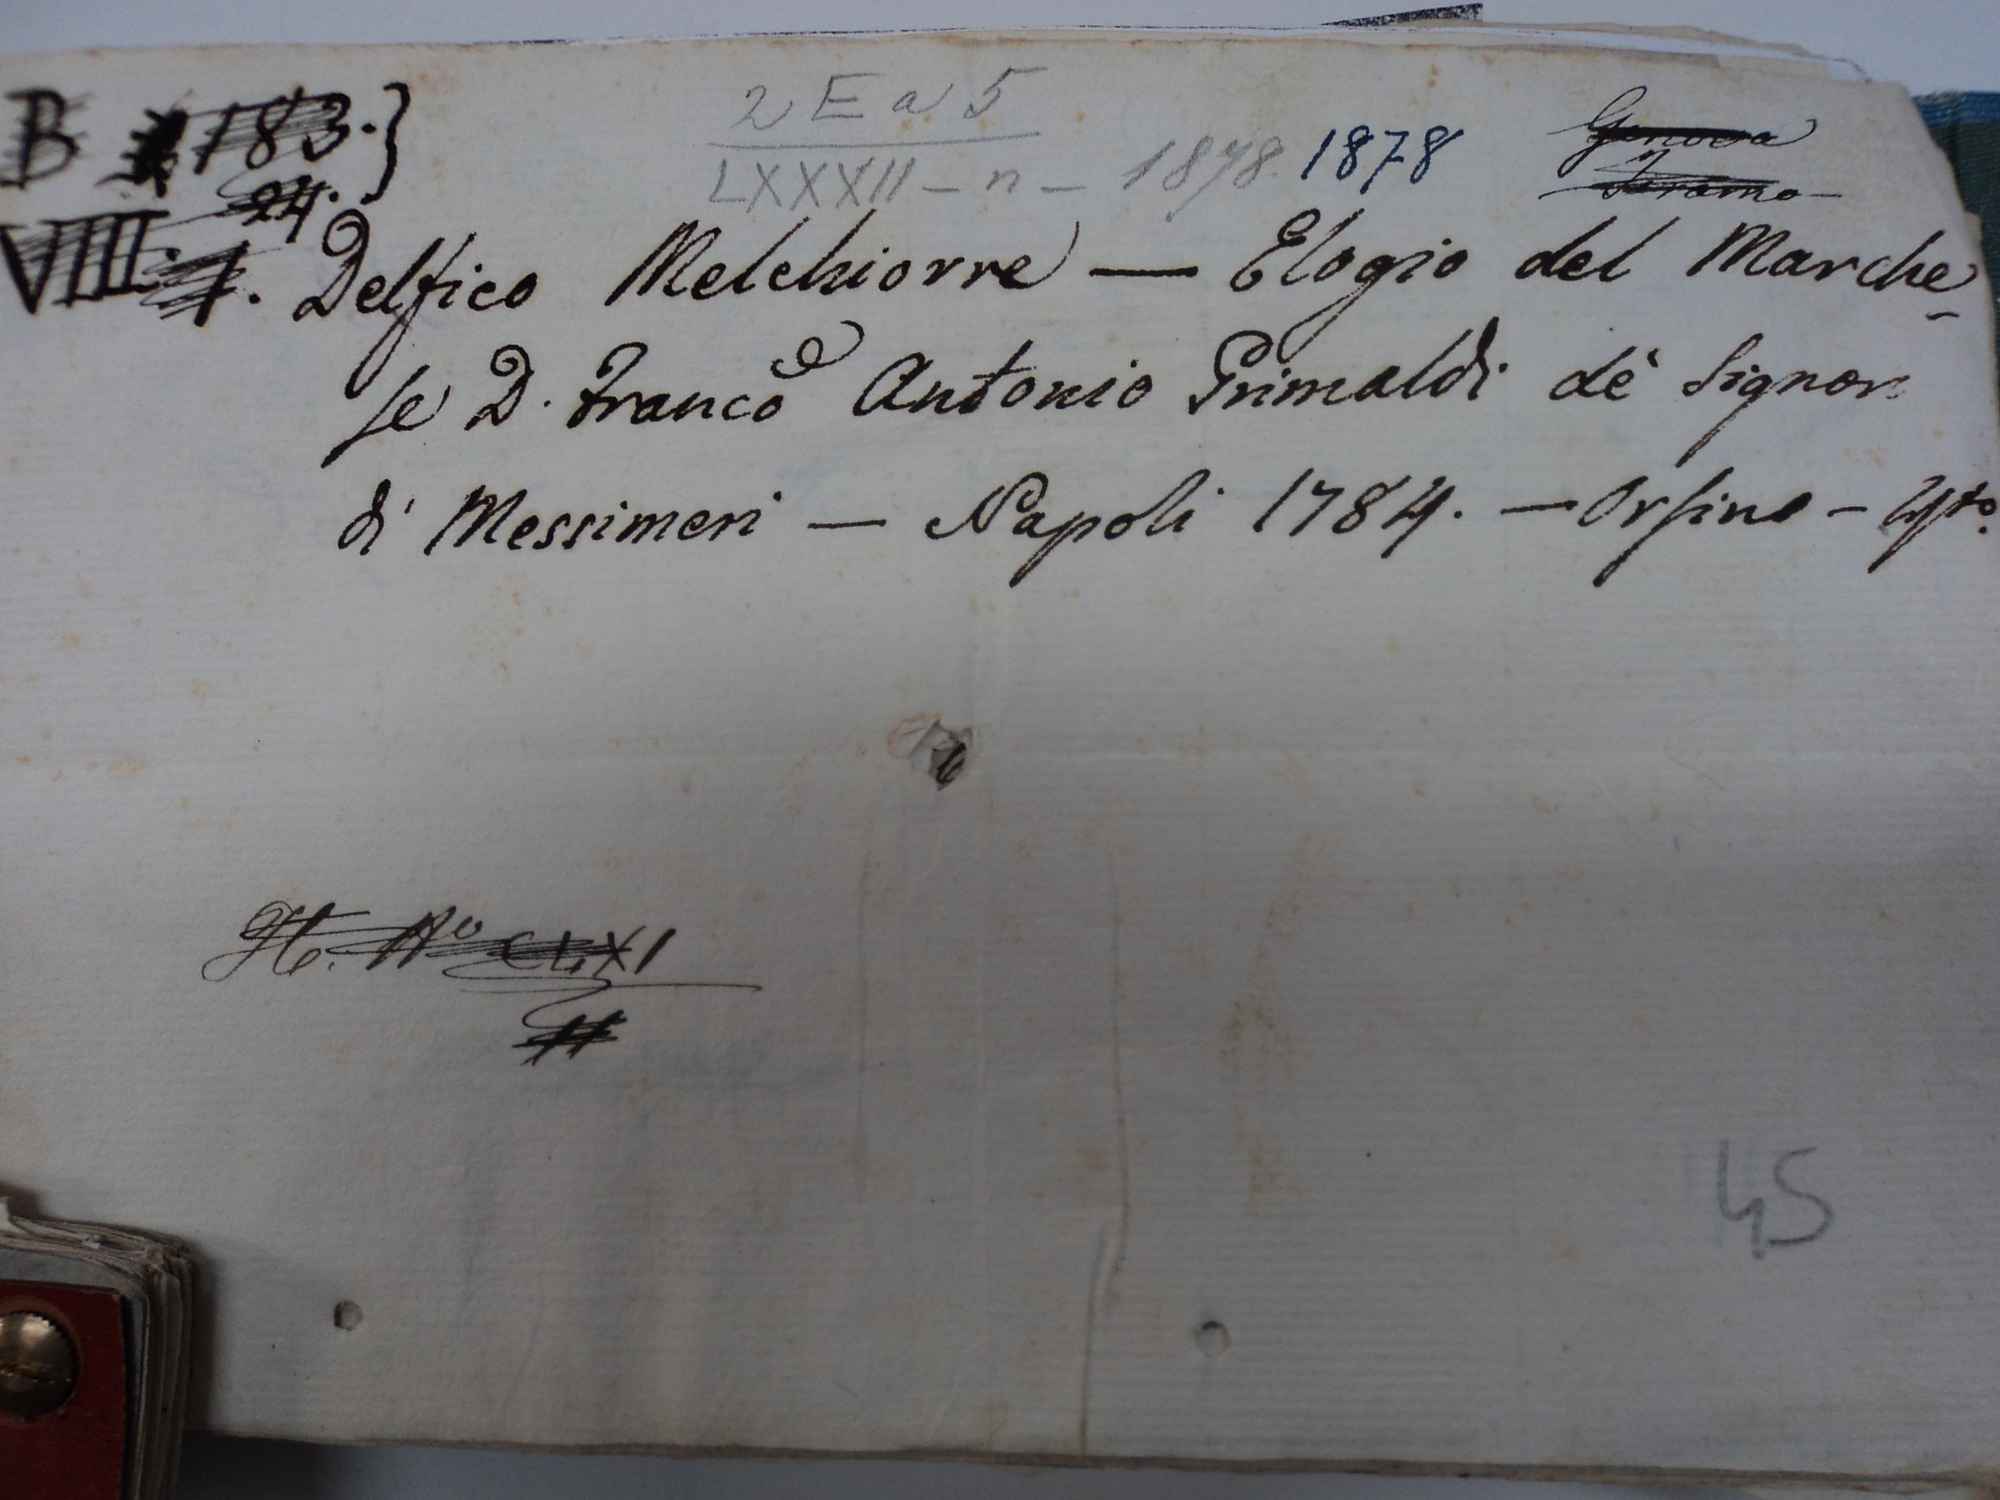 B 183.}
24.
2 E a 5
LXXXII - n - 1878. 1878
Genova
Teramo
VIII. 1. Delfico Melchiorre — Elogio del Marche-
se D. Franc.o Antonio Grimaldi dè Signori
di Messimeri — Napoli 1784. — Orsino — 4to.
CLXXI
45